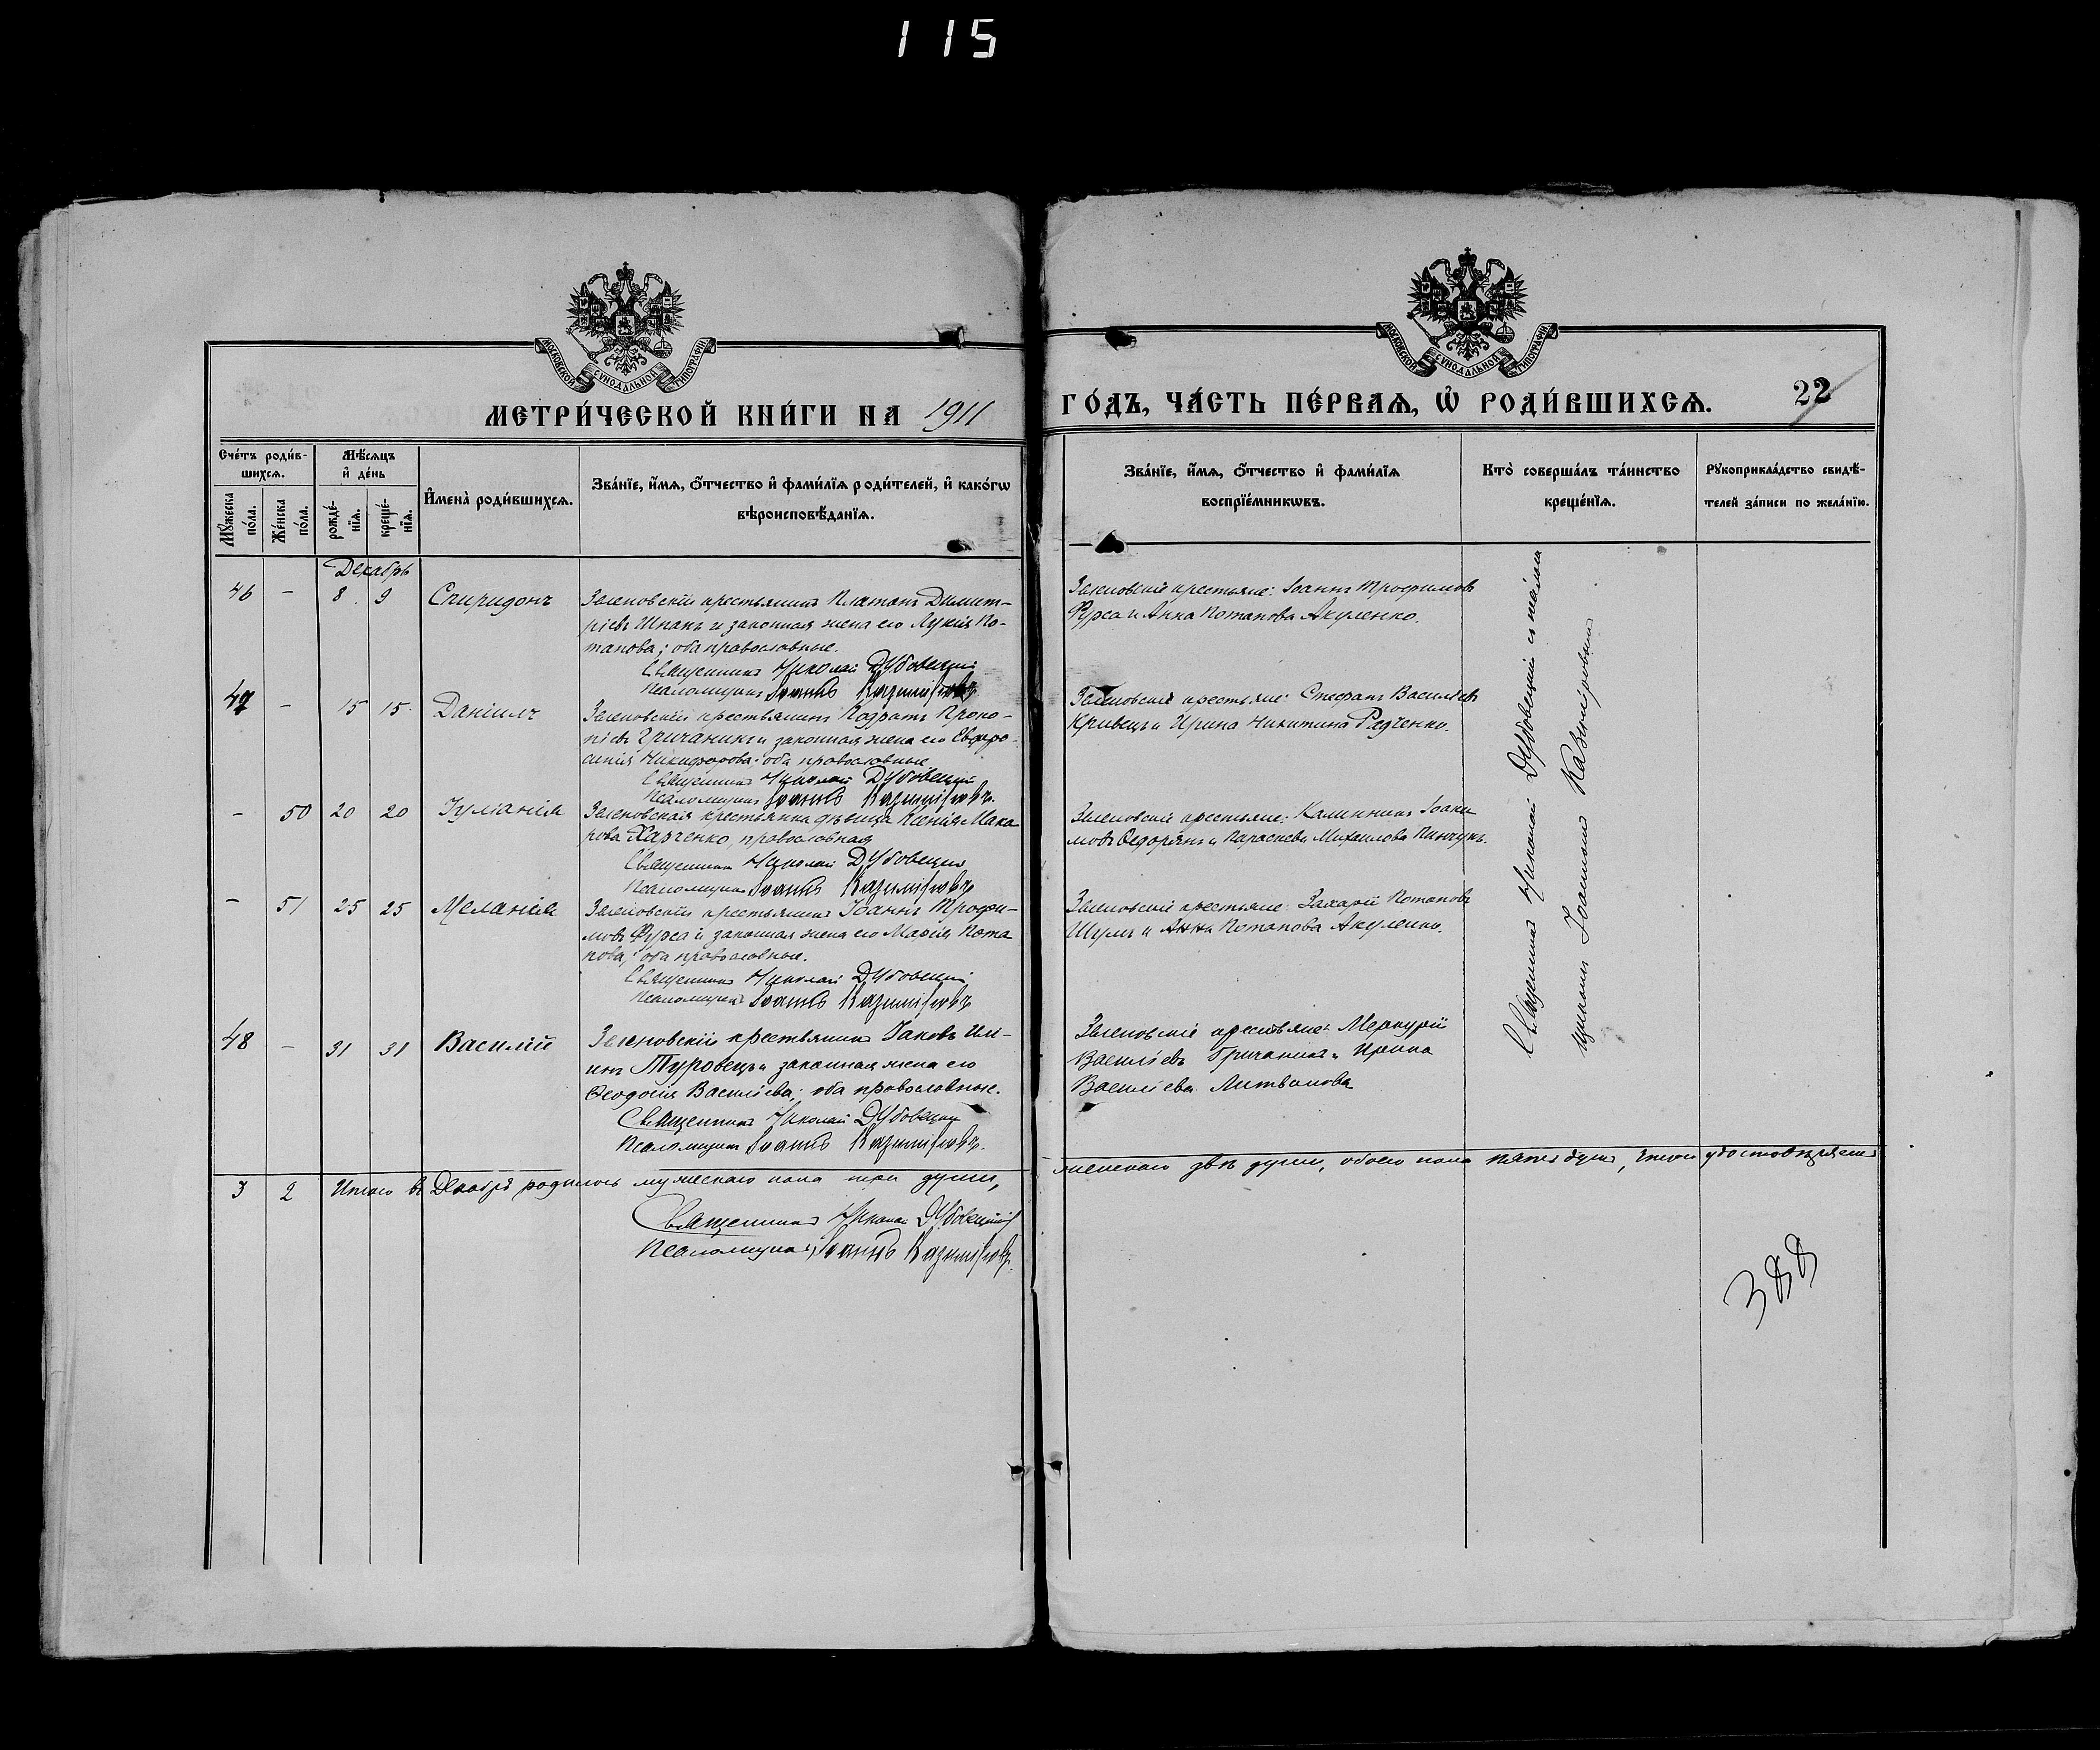 115
МОСКОВСКОЙ СѴНОДАЛЬНОЙ ТИПОГРАФІИ
МОСКОВСКОЙ СѴНОДАЛЬНОЙ ТИПОГРАФІИ
МЕТРИ́ЧЕСКОЙ КНИ́ГИ НА 1911
ГО́ДЪ, ЧА́СТЬ ПЕ́РВАѦ, Ѡ҆ РОДИ́ВШИХСѦ.
22
Сче́тъ роди́в-
шихсѧ.
Мꙋ́жеска
по́ла.
Же́нска
по́ла.
Мѣ́сѧцъ
и҆ де́нь
рожде́-
нїѧ.
креще́-
нїѧ.
И҆мена̀ роди́вшихсѧ.
Зва́нїе, и҆́мѧ, ѻ҆́тчество и҆ фами́лїѧ роди́телей, и҆ како́гѡ
вѣроисповѣ́данїѧ.
Зва́нїе, и҆́мѧ, ѻ҆́тчество и҆ фами́лїѧ
воспрїе́мникѡвъ.
Кто̀ соверша́лъ та́инство
креще́нїѧ.
Рꙋкоприкла́дство свидѣ́-
телей за́писи по жела́нїю.
Декабрь
46 - 8 9 Спиридонъ
Зеленовскій крестьянинъ Платонъ Димит-
ріевъ Шпакъ и законная жена его Лукія По-
тапова; оба православные.
Священникъ Николай Дубовецкій
Псаломщикъ Іоаннъ Казиміровъ.
Зеленовскіе крестьяне: Іоаннъ Трофимовъ
Фурса и Анна Потапова Акуленко.
47 - 15 15 Даніилъ
Зеленовскій крестьянинъ Кодратъ Проко-
піевъ Гричаникъ и законная жена его Евфро-
синія Никифорова; оба православные
Священникъ Николай Дубовецкій
Псаломщикъ Іоаннъ Казиміровъ.
Зеленовскіе крестьяне: Стефанъ Васильевъ
Кривецъ и Ирина Никитина Радченко.
- 50 20 20 Іуліанія
Зеленовская крестьянка дѣвица Ксенія Мака
рова Харченко, православная
Священникъ Николай Дубовецкій
Псаломщикъ Іоаннъ Казиміровъ
Зеленовскіе крестьяне: Калинникъ Іоаки
мовъ Федорянъ и Параскева Михаилова Пинчукъ.
- 51 25 25 Меланія
Зеленовскій крестьянинъ Іоаннъ Трофи-
мовъ Фурса и законная жена его Марія Пота
пова; оба православные.
Священникъ Николай Дубовецкій
Псаломщикъ Іоаннъ Казиміровъ
Зеленовскіе крестьяне: Захарій Потаповъ
Шумъ и Анна Потапова Акуленко.
48 - 31 31 Василій
Зеленовскій крестьянинъ Іаковъ Иль-
инъ Туровецъ и законная жена его
Ѳеодосія Васильева; оба православные.
Священникъ Николай Дубовецкій
Псаломщикъ Іоаннъ Казиміровъ.
Зеленовскіе крестьяне: Меркурій
Васильевъ Гричаникъ и Ирина
Васильева Литвинова
Священникъ Николай Дубовецкій съ псалом
щикомъ Іоанномъ Казиміровымъ
3 2 Итого въ Декабрѣ родилось мужескаго пола три души,
женскаго двѣ души, обоего пола пять душъ, въ чемъ удостовѣряемъ
Священникъ Николай Дубовецкій
Псаломщикъ Іоаннъ Казиміровъ.
388